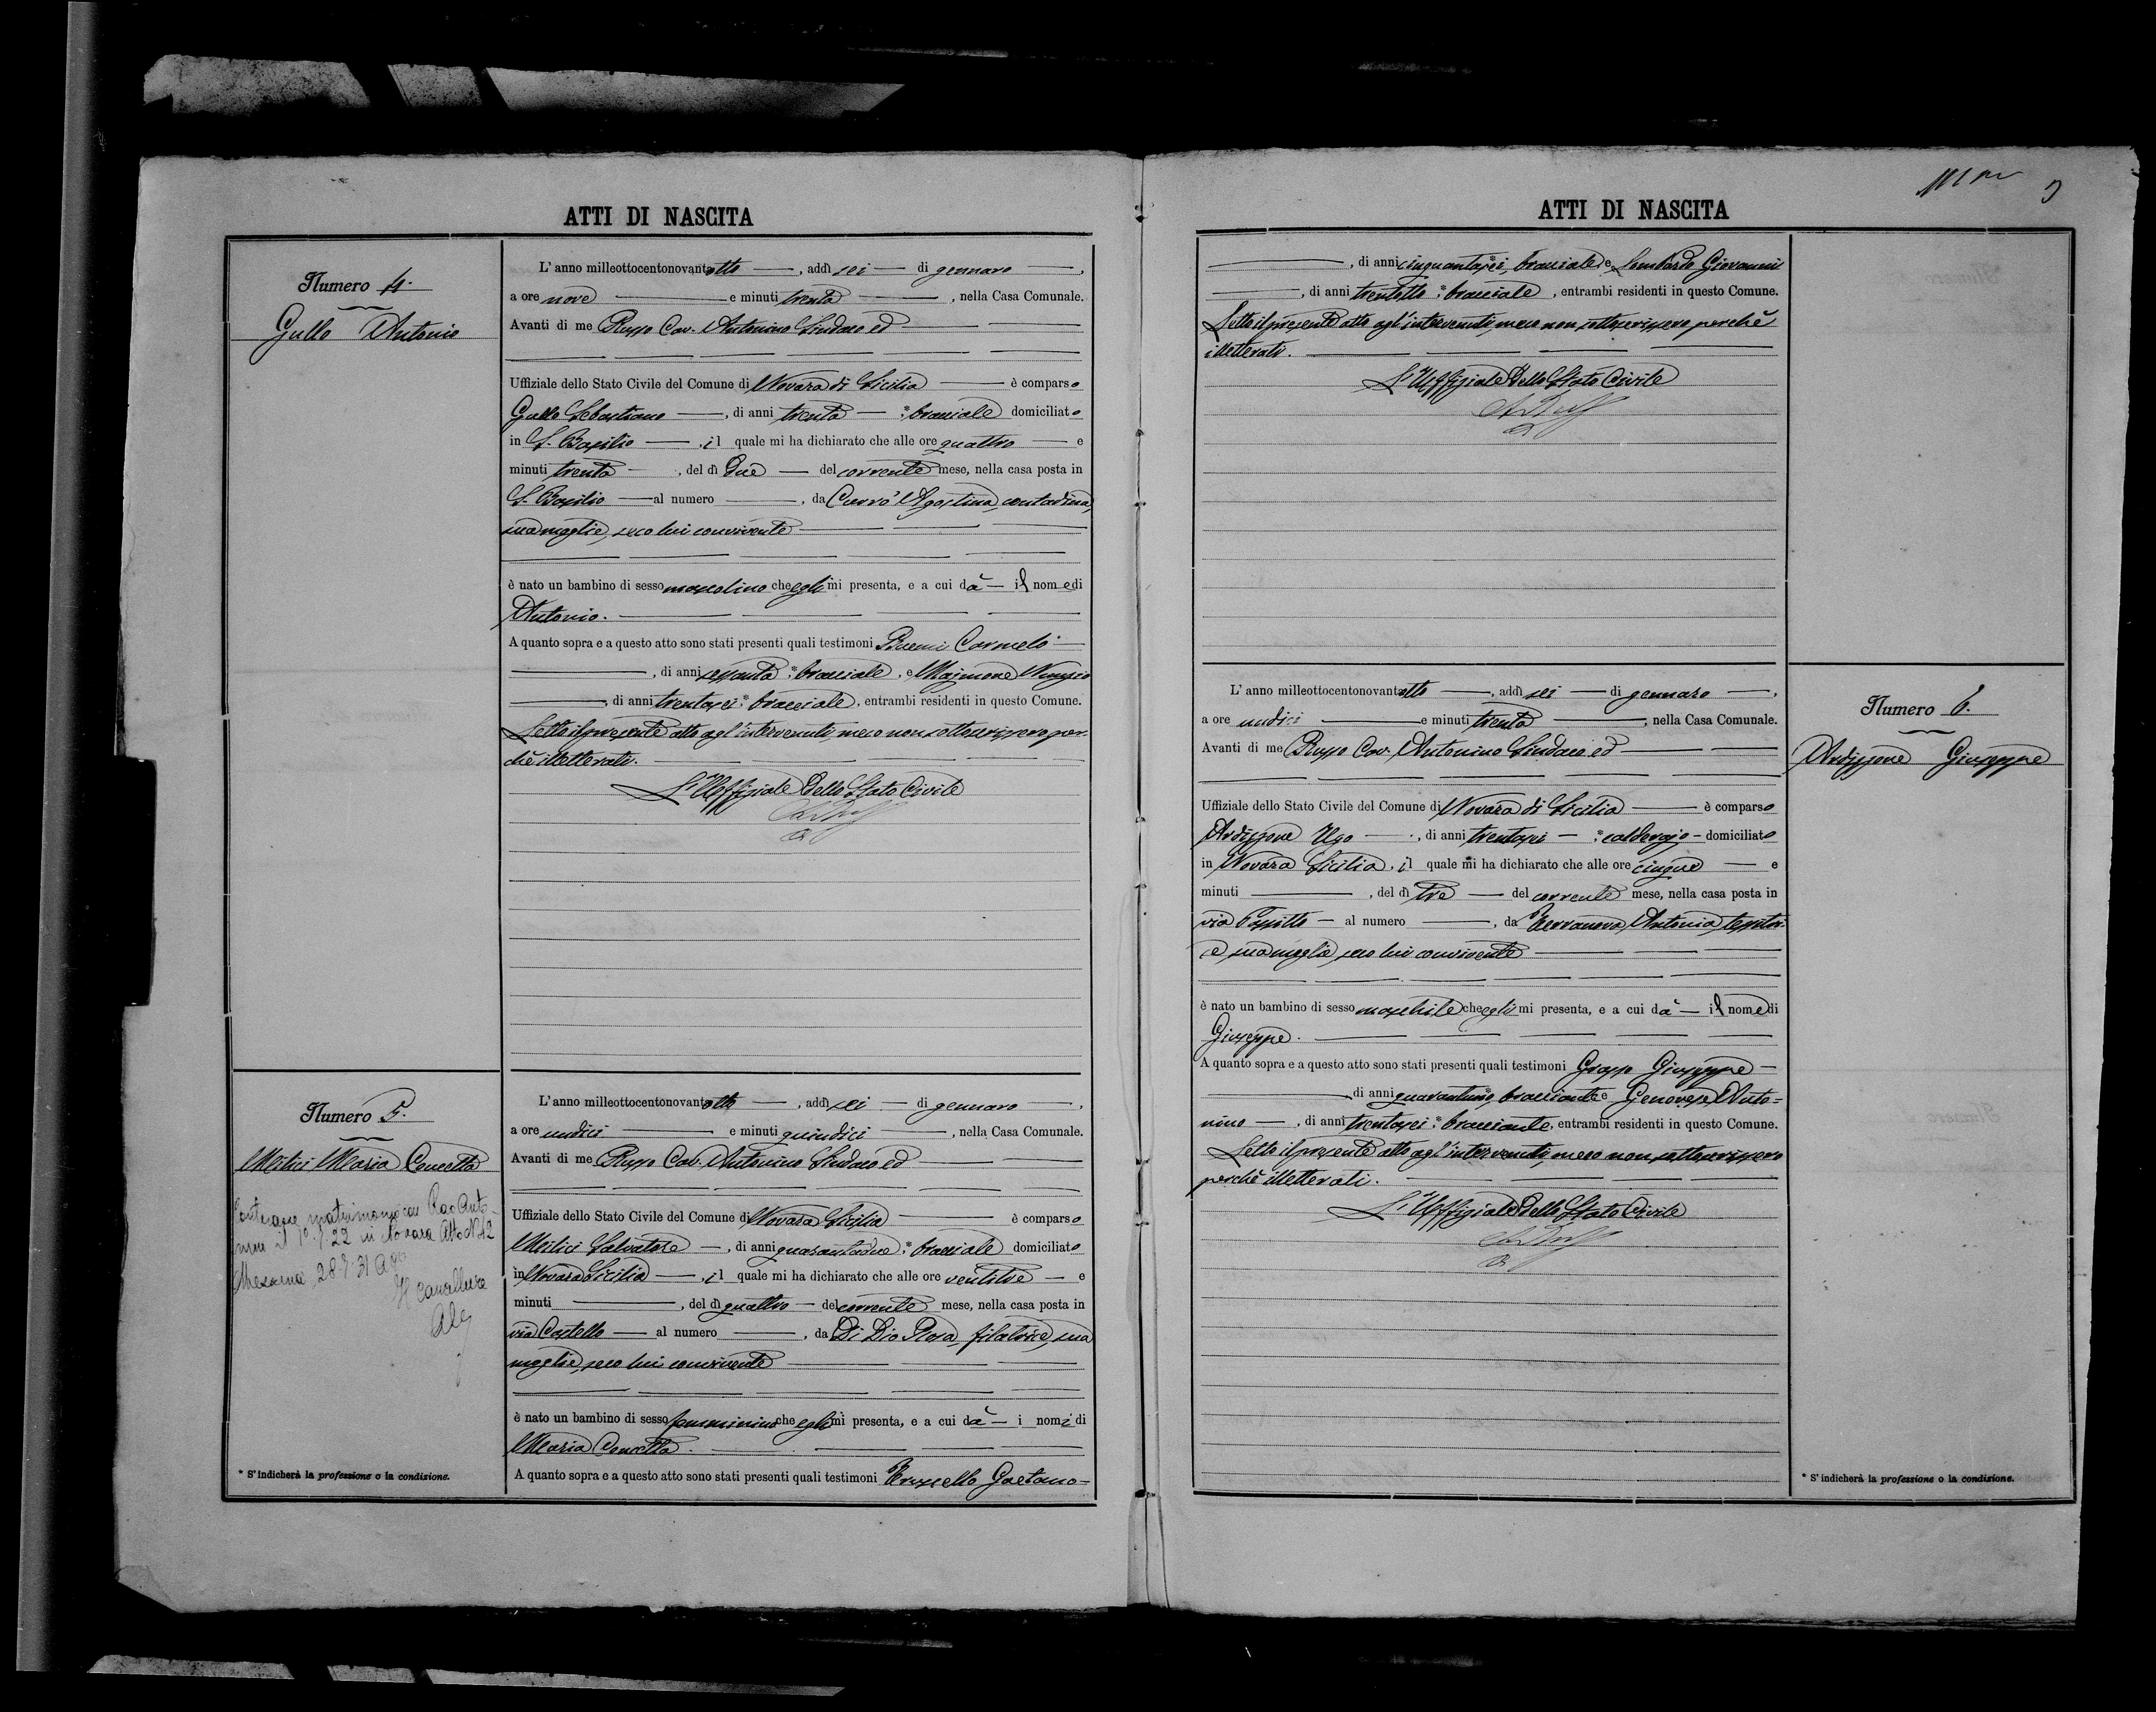 ATTI DI NASCITA
Numero 4.
Gullo Antonio
L'anno milleottocentonovantotto, addì sei di gennaro,
a ore nove e minuti trenta, nella Casa Comunale.
Avanti di me Russo Cav. Antonino Sindaco ed
Uffiziale dello Stato Civile del Comune di Novara di Sicilia è comparso
Gullo Sebastiano, di anni trenta * bracciale domiciliato
in S. Basilio, il quale mi ha dichiarato che alle ore quattro e
minuti trenta, del dì due del corrente mese, nella casa posta in
S. Basilio al numero , da Currò Agostina, contadina,
sua moglie, seco lui convivente
è nato un bambino di sesso mascolino che egli mi presenta, e a cui dà il nome di
Antonio.
A quanto sopra e a questo atto sono stati presenti quali testimoni Buemi Carmelo
, di anni sessanta * bracciale, e Majmone Nunzio
, di anni trentasei * bracciale, entrambi residenti in questo Comune.
Letto il presente atto agl'intervenuti, meco non sottoscrissero per-
chè illetterati.
L'Uffiziale dello Stato Civile
Numero 5.
Milici Maria Concetta
matrimonio con Rao Anto-
22 in Novara Atto N. 12
L'anno milleottocentonovantotto, addì sei di gennaro,
a ore undici e minuti quindici, nella Casa Comunale.
Avanti di me Russo Cav. Antonino Sindaco ed
Uffiziale dello Stato Civile del Comune di Novara Sicilia è comparso
Milici Salvatore, di anni quarantadue * bracciale domiciliato
in Novara Sicilia, il quale mi ha dichiarato che alle ore ventitre e
minuti , del dì quattro del corrente mese, nella casa posta in
via Castello al numero , da Di Dio Rosa, filatrice, sua
moglie, seco lui convivente
è nato un bambino di sesso femminino che egli mi presenta, e a cui dà i nomi di
Maria Concetta.
A quanto sopra e a questo atto sono stati presenti quali testimoni Truscello Gaetano
* S'indicherà la professione o la condizione.
ATTI DI NASCITA
, di anni cinquantasei, bracciale, e Lombardo Giovanni
, di anni trentotto * bracciale, entrambi residenti in questo Comune.
Letto il presente atto agl'intervenuti, meco non sottoscrissero perchè
illetterati.
L'Uffiziale dello Stato Civile
Numero 6.
Ardizzone Giuseppe
L'anno milleottocentonovantotto, addì sei di gennaro,
a ore undici e minuti trenta, nella Casa Comunale.
Avanti di me Russo Cav. Antonino Sindaco ed
Uffiziale dello Stato Civile del Comune di Novara di Sicilia è comparso
Ardizzone Ugo, di anni trentasei * calderajo domiciliato
in Novara Sicilia, il quale mi ha dichiarato che alle ore cinque e
minuti , del dì tre del corrente mese, nella casa posta in
via al numero , da Terranova Antonia, tessitri-
ce, sua moglie, seco lui convivente
è nato un bambino di sesso maschile che egli mi presenta, e a cui dà il nome di
Giuseppe.
A quanto sopra e a questo atto sono stati presenti quali testimoni Grasso Giuseppe
di anni quarantuno * bracciante e Genovese Anto-
nino, di anni trentasei * bracciante, entrambi residenti in questo Comune.
Letto il presente atto agl'intervenuti, meco non sottoscrissero
perchè illetterati.
L'Uffiziale dello Stato Civile
* S'indicherà la professione o la condizione.